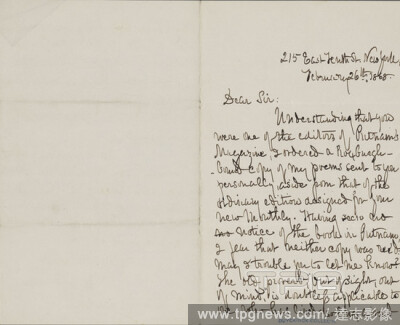 215 East Tenth St. New York,
February 26th, 1868.
Dear Sir:
Understanding that you
were one of the editors of Putnam's
Magazine, I ordered a Roxburgh-
bound copy of my poems sent to you
personally, aside from that of the
ordinary edition designed for your
new Monthly. Having seen
no notice of the book in Putnam,
I fear that neither copy was rec'd.
May I trouble me to let me know?
The old proverb, "out of sight, out
of mind," is doubtless applicable to
達志影像
www.tpgimages.com